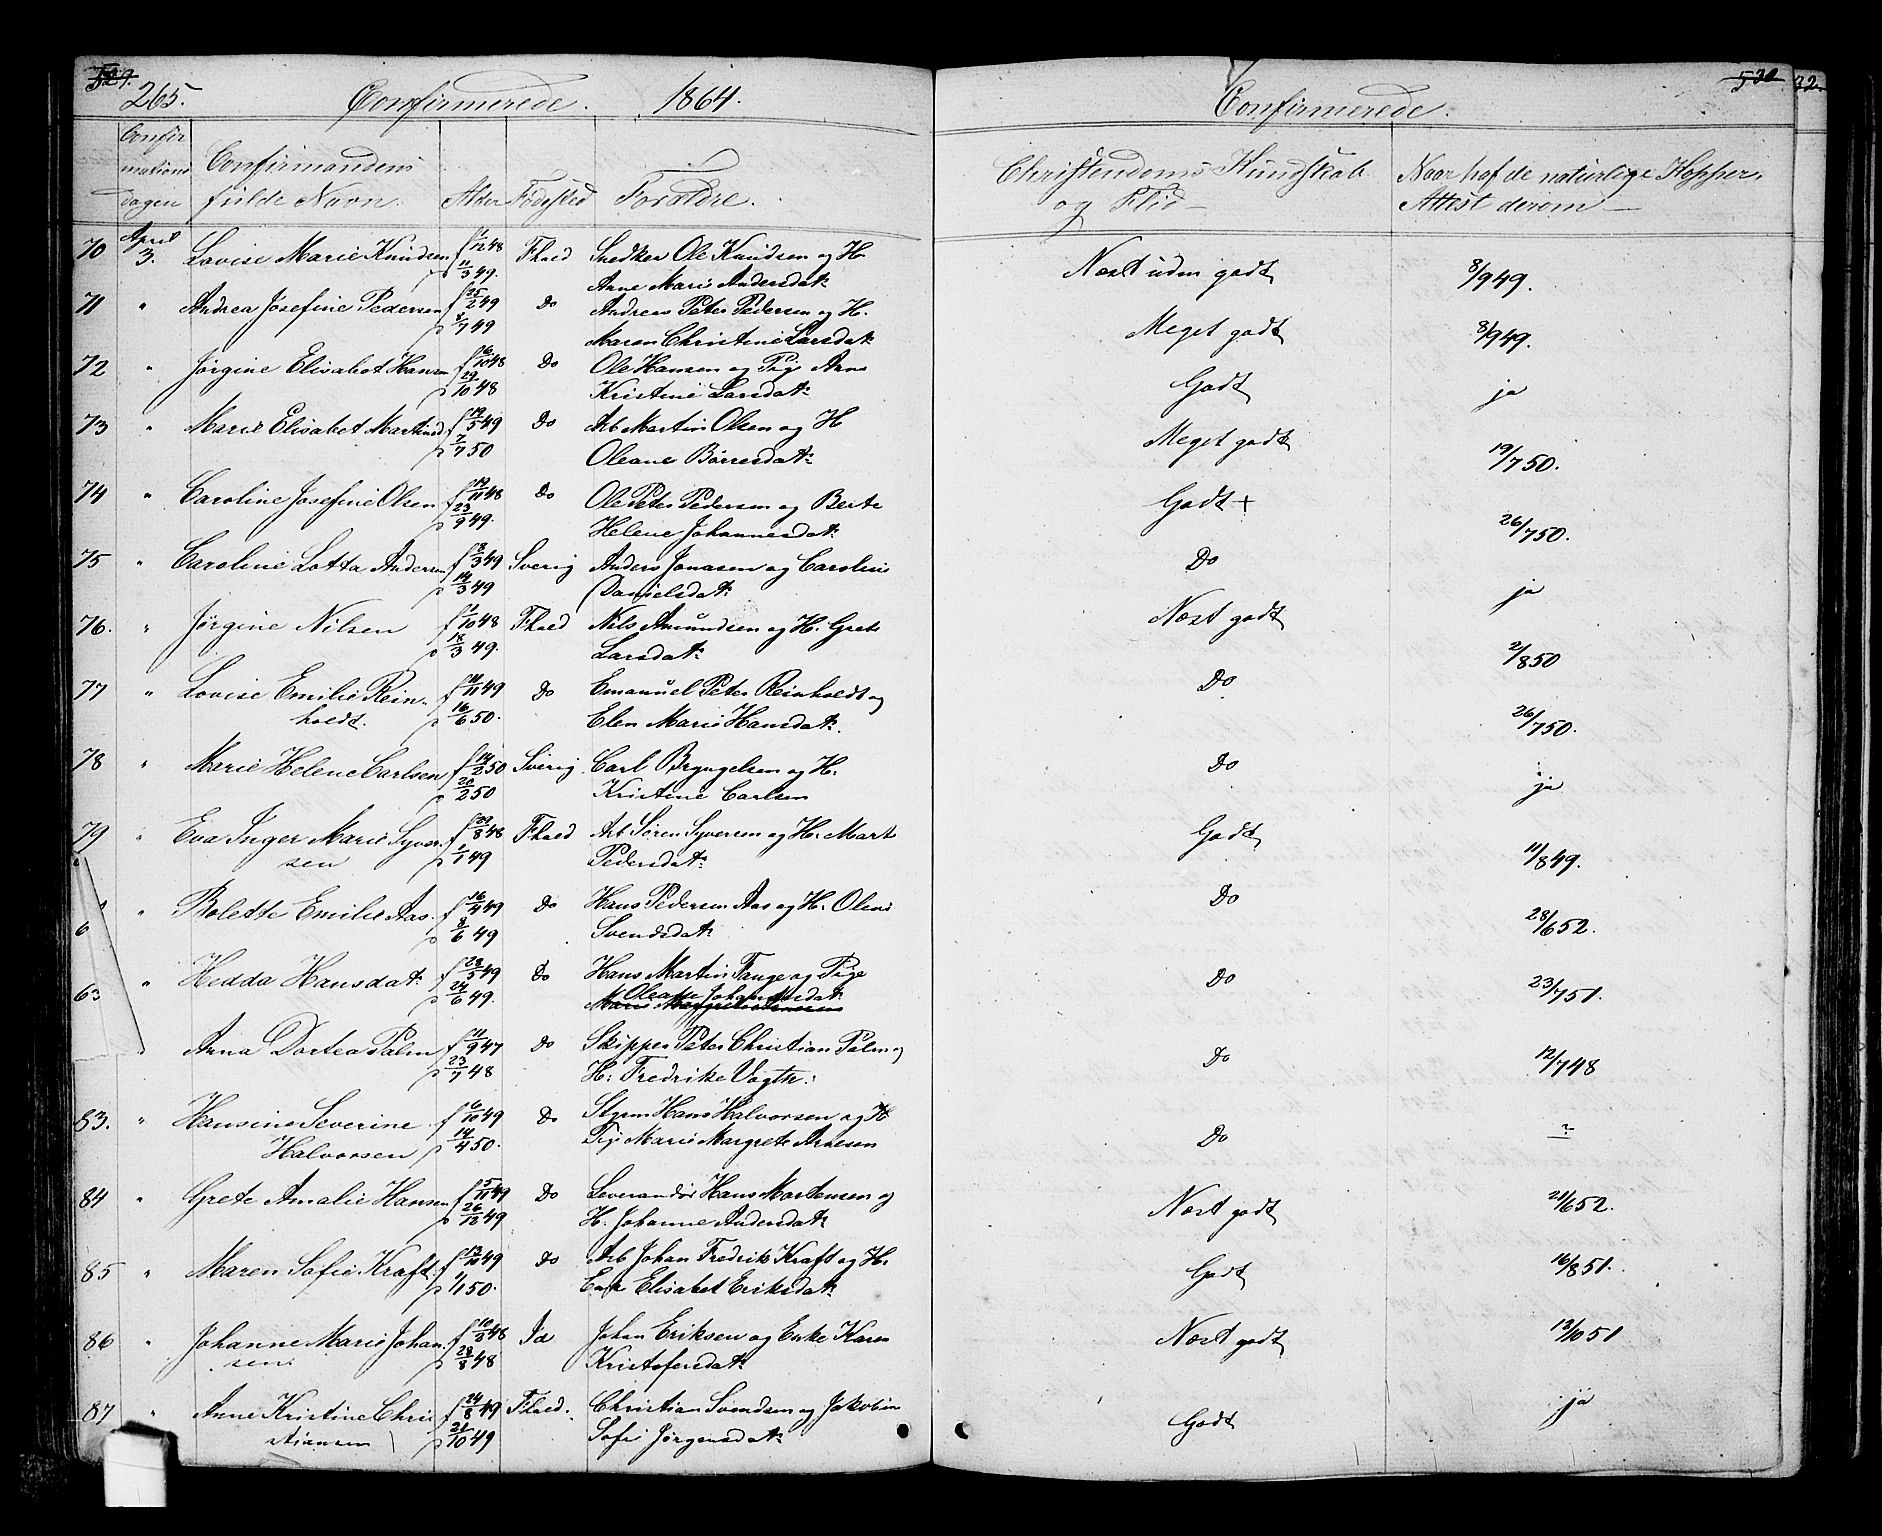 265.
Confirmerede. 1864.
Confir
mations
dagen
Confirmandens
fulde Navn.
Alder
Fødested
Forældre.
70 April 3. Lovise Marie Knudsen f 1/12 48 Fhald Snedker Ole Knudsen og H.
p 11/3 49. Anne Marie Andersdat:
71 " Andrea Josefine Pedersen f 25/2 49 Do Andreas Peter Pedersen og H.
p 8/7 49 Maren Christine Larsdat:
72 " Jørgine Elisabet Hansen f 6/10 48 Do Ole Hansen og Pige Anne
p 29/10 48 Kristine Larsdat:
73 " Marie Elisabet Martinsd. f 19/5 49 Do Arb Martin Olsen og H
p 7/7 50 Oleane Børresdat:
74 " Caroline Josefine Olsen f 19/11 48 Do Ole Peter Pedersen og Berte
p 23/9 49. Helene Johannesdat:
75 " Caroline Lotta Andersen f 8/3 49 Sverig Anders Jonasen og Caroline
p 14/3 49 Danielsdat:
76. " Jørgine Nilsen f 1/10 48 Fhald Nils Amundsen og H. Grete
p 18/3 49. Larsdat:
77 " Lovise Emilie Rein- f 11/11 49 Do Emanuel Peter Reinholdt og
holdt. p 16/6 50. Elen Marie Hansdat:
78 " Marie Helene Carlsen f 14/2 50 Sverig Carl Bryngelsen og H.
p 20/2 50 Kristine Carlsen
79 " Eva Inger Marie Syver- f 29/8 48 Fhald Arb Søren Syversen og H. Mart
sen p 1/1 49 Pedersdat:
" Bolette Emilie Aas. f 16/4 49 Do Hans Pedersen Aas og H. Olene
p 3/6 49 Svendsdat:
" Hedda Hansdat: f 23/5 49 Do Hans Martin Tange og Pige
p 24/6 49.
" Anna Dortea Palm f 11/9 47 Do Skipper Peter Christian Palm og
p 23/7 48 H: Fredrike Vogth:
83. " Hansine Severine f 6/10 49 Do Styrm Hans Halvorsen og H
Halvorsen p 14/4 50. Pige Marie Margrete Arnesen
84 " Grete Amalie Hansen f 5/11 49 Do Leverandør Hans Mortensen og
p 26/12 49 H. Johanne Andersdat:
85 " Maren Sofie Kraft. f 13/10 49 Do Arb Johan Fredrik Kraft og H.
p 1/1 50. Elisabet Eriksdat:
86 " Johanne Marie Johan- f 10/3 48 Id Johan Eriksen og Enke Karen
sen p 28/8 48 Kristofersdat:
87 " Anne Kristine Chris f 24/8 49 Fhald. Christian Svendsen og Jakobine
tiansen p 21/10 49 Sofie Jørgensdat:
Confirmerede.
Christendoms Kundskab
og Flid
Naar haf de naturlige Kopper,
Attest derom
Næst uden godt 8/9 49.
Meget godt 8/9 49.
Godt ja
Meget godt 19/7 50.
Godt + 26/7 50.
Do ja
Næst godt 2/8 50
Do 26/7 50.
Do ja
Godt 11/8 49.
Do 28/6 52.
Do 23/7 51.
Do 12/7 48
Do ?
Næst godt 21/6 52.
Godt 16/8 51.
Næst godt 13/10 51
Godt ja